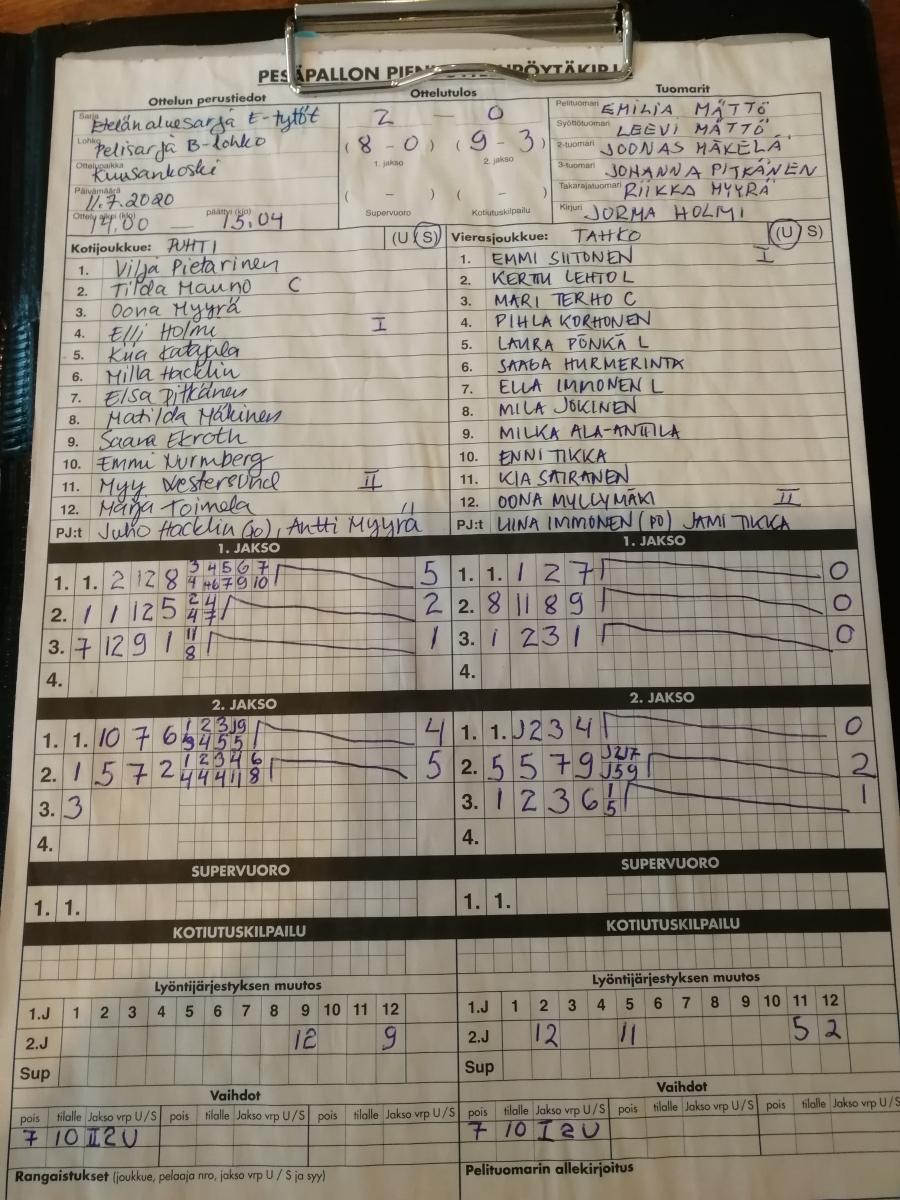 PESÄPALLON
Ottelun perustiedot
Ottelutulos
Tuomarit
Sarja Etelän aluesarja E-tytöt
Lohko Pelisarja B-lohko
Ottelupaikka Kuusankoski
Päivämäärä 11.7.2020
Ottelu alkoi (klo) 14.00 — päättyi (klo) 15.04
2 — 0
(8 - 0) (9 - 3)
1. jakso 2. jakso
( - ) ( - )
Supervuoro Kotiutuskilpailu
Pelituomari EMILIA MÄTTÖ
Syöttötuomari LEEVI MÄTTÖ
2-tuomari JOONAS MÄKELÄ
3-tuomari JOHANNA PITKÄNEN
Takarajatuomari RIIKKA MYYRÄ
Kirjuri JORMA HOLMI
Kotijoukkue: PUHTI (U S)
1. Vilja Pietarinen
2. Tilda Mauno C
3. Oona Myyrä
4. Elli Holmi I
5. Kiia Katajala
6. Milla Hacklin
7. Elsa Pitkänen
8. Matilda Mäkinen
9. Saara Ekroth
10. Emmi Nurmberg
11. Myy Westerlund II
12. Marja Toimela
PJ:t Juho Hacklin (po), Antti Myyrä
Vierasjoukkue: TAHKO (U S)
1. EMMI SIITONEN I
2. KERTTU LEHTO L
3. MARI TERHO C
4. PIHLA KORHONEN
5. LAURA PÖNKÄ L
6. SAAGA HURMERINTA
7. ELLA IMMONEN L
8. MILA JOKINEN
9. MILKA ALA-ANTTILA
10. ENNI TIKKA
11. KIA SAIRANEN
12. OONA MYLLYMÄKI II
PJ:t LIINA IMMONEN (PO) JAMI TIKKA
1. JAKSO
1. 1. 2 12 8 3 4 5 6 7 5
4 4 6 7 9 10
2. 1 1 12 5 2 4 2
4 7
3. 7 12 9 1 11 1
8
4.
1. JAKSO
1. 1. 1 2 7 0
2. 8 11 8 9 0
3. 1 2 3 1 0
4.
2. JAKSO
1. 1. 10 7 6 1 2 3 J9 4
3 4 5 5
2. 1 5 7 2 1 2 3 4 6 5
4 4 4 11 8
3. 3
4.
2. JAKSO
1. 1. J2 3 4 0
2. 5 5 7 9 J2 J7 2
J5 9
3. 1 2 3 6 1 1
5
4.
SUPERVUORO
1. 1.
SUPERVUORO
1. 1.
KOTIUTUSKILPAILU
KOTIUTUSKILPAILU
Lyöntijärjestyksen muutos
1.J 1 2 3 4 5 6 7 8 9 10 11 12
2.J 12 9
Sup
Lyöntijärjestyksen muutos
1.J 1 2 3 4 5 6 7 8 9 10 11 12
2.J 12 11 5 2
Sup
Vaihdot
pois tilalle Jakso vrp U / S pois tilalle Jakso vrp U / S pois tilalle Jakso vrp U / S
7 10 II 2 U
Vaihdot
pois tilalle Jakso vrp U / S pois tilalle Jakso vrp U / S pois tilalle Jakso vrp U / S
7 10 I 2 U
Rangaistukset (joukkue, pelaaja nro, jakso vrp U / S ja syy)
Pelituomarin allekirjoitus